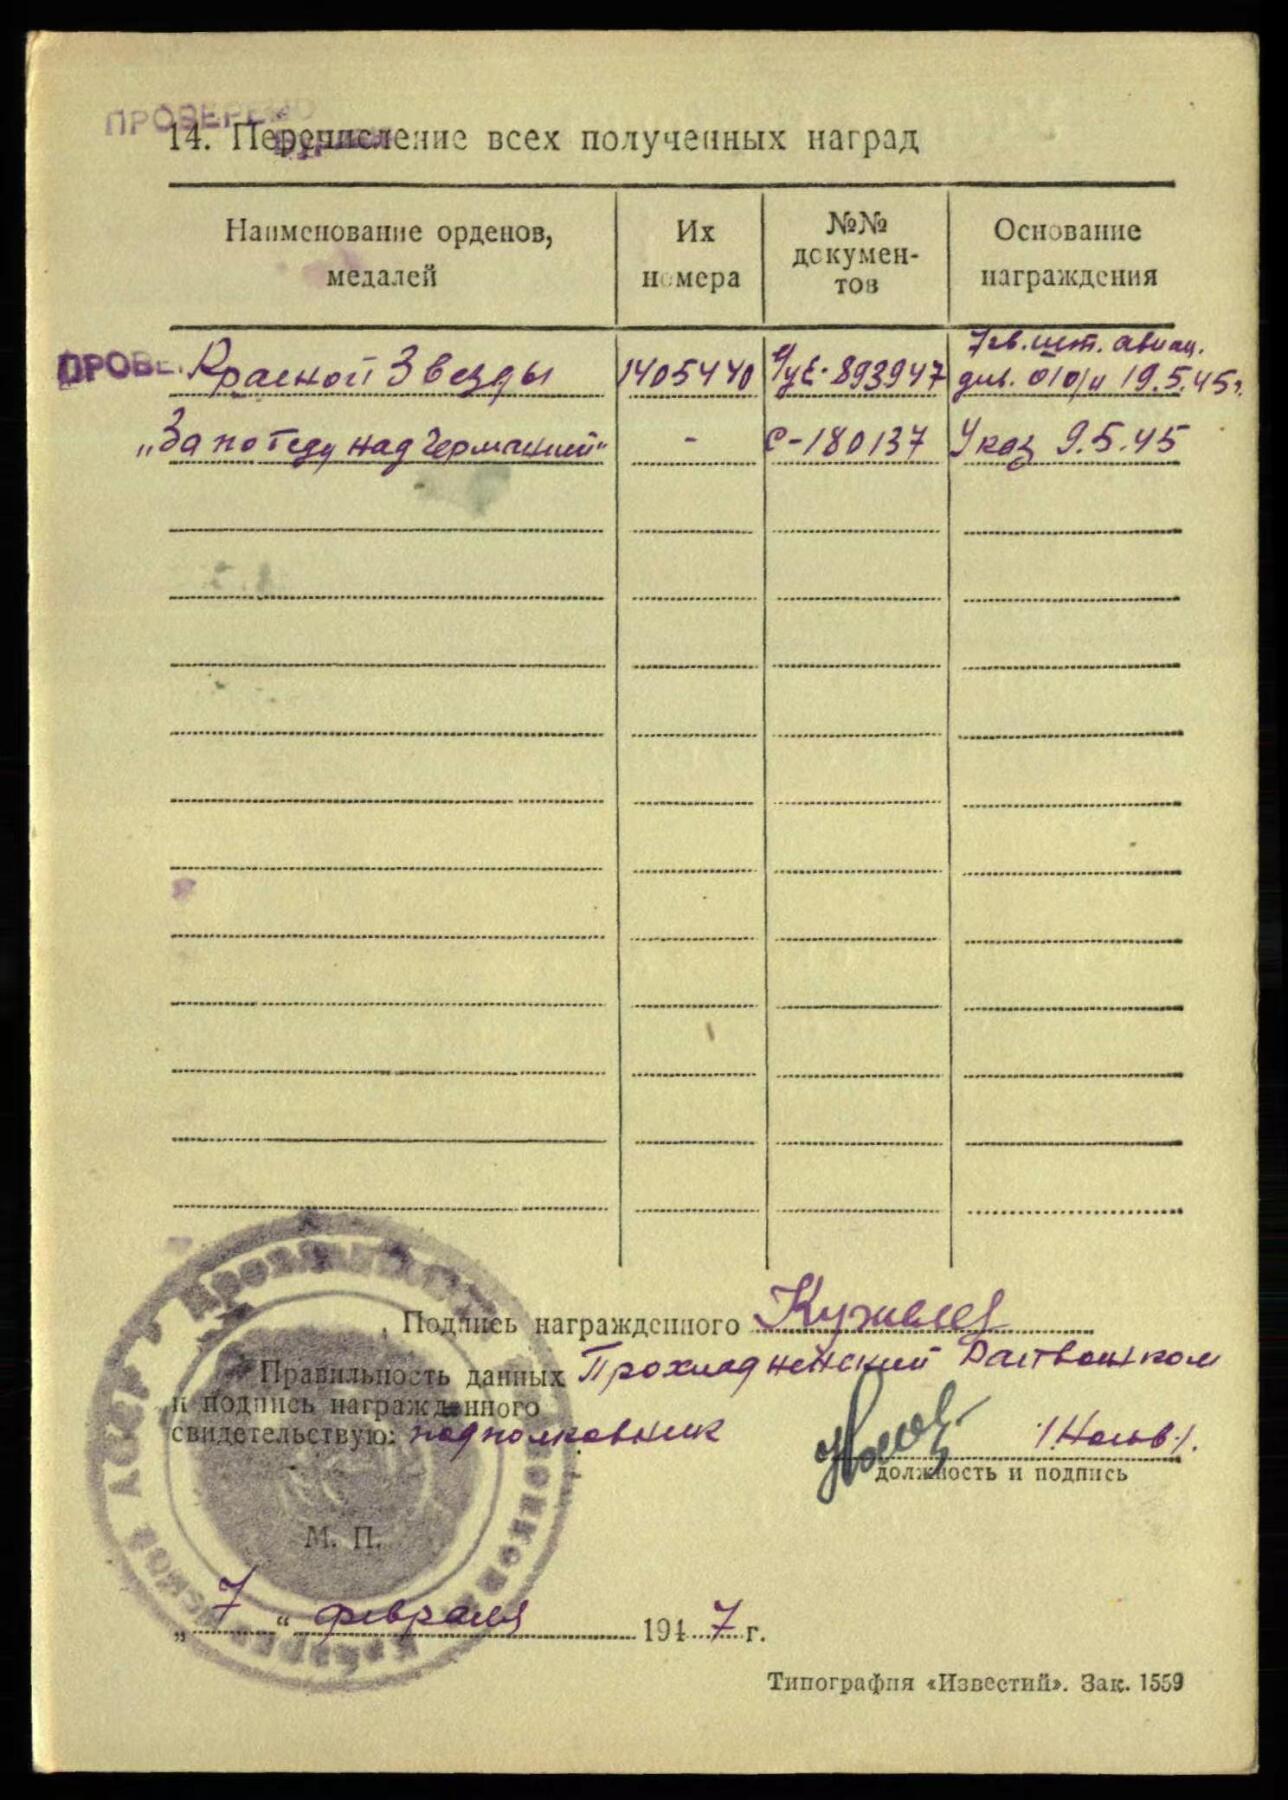 ПРОВЕРЕНО
14. Перечисление всех полученных наград
Наименование орденов, медалей
Их номера
№№ докумен-
тов
Основание награждения
ПРОВЕ
Красной Звезды 1405440 893947 7 гв. шт. авиац.
див. 010/н 19.5.45г.
„За победу над Германией“ - С-180137 Указ 9.5.45
Подпись награжденного
Правильность данных Прохладненский Райвоенком
и подпись награжденного
свидетельствую: подполковник
должность и подпись
М. П.
„7“ февраля 1947 г.
Типография «Известий». Зак. 1559